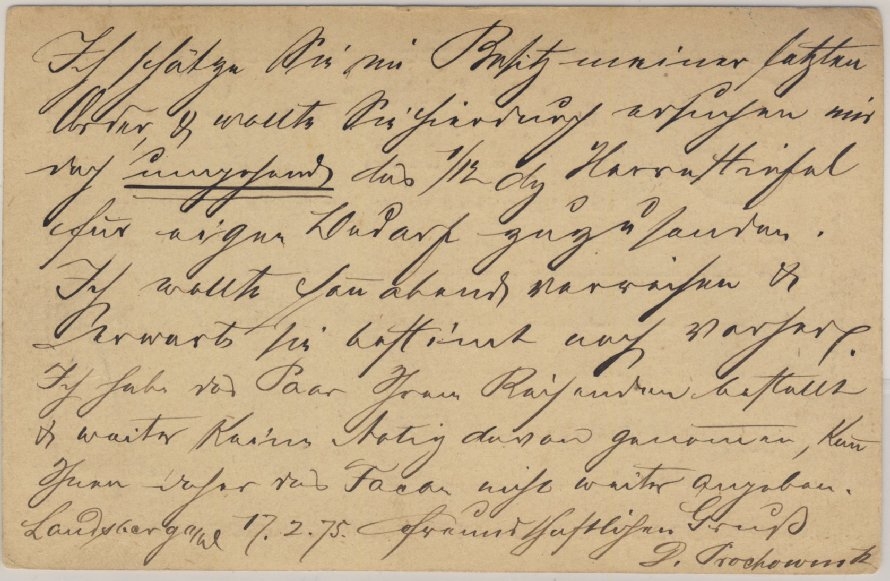 Ich schätze Sie im Besitz meiner letzten
Order, & wollte Sie hierdurch ersuchen mir
doch umgehend das 1/12 dz Herrnstiefel
für eigen Bedarf zuzusenden.
Ich wollte Sonnabend verreisen &
erwarte sie bestimt noch vorher.
Ich habe das Paar Ihrem Reisenden bestellt
& weiter keine Notiz davon genomen, kan
Ihnen daher das Facon nicht weiter angeben.
Landsberg a/W 17.2.75. Freundschaftlichen Gruß
D. Prochownik